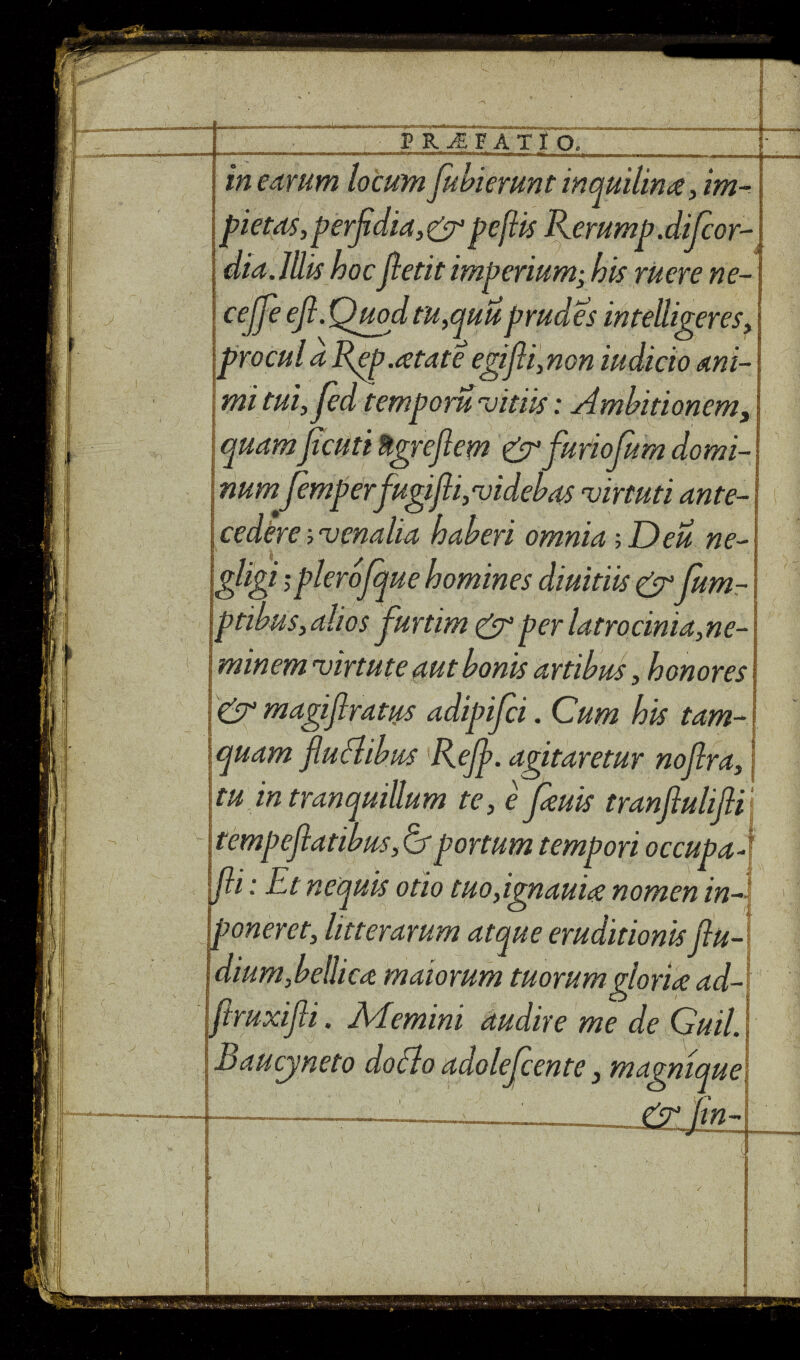 PRÆFATIO.
in earum locum ſubierunt inquilinæ, im-
pietas, perfidia, & peſtis Rerump. diſcor-
dia. Illis hoc ſtetit imperium; his ruere ne-
ceſſe eſt. Quod tu, quũ prudẽs intelligeres,
procul à Rep. ætatẽ egiſti, non iudicio ani-
mi tui, ſed temporũ vitiis: Ambitionem,
quam ſicuti agreſtem & furioſum domi-
num ſemper fugiſti, videbas virtuti ante-
cedere; venalia haberi omnia; Deũ ne-
gligi; pleróſque homines diuitiis & ſum-
ptibus, alios furtim & per latrocinia, ne-
minem virtute aut bonis artibus, honores
& magiſtratus adipiſci. Cum his tam-
quam fluctibus Reſp. agitaretur noſtra,
tu in tranquillum te, è ſæuis tranſtuliſti
tempeſtatibus, & portum tempori occupa-
ſti: Et nequis otio tuo, ignauiæ nomen in-
poneret, litterarum atque eruditionis ſtu-
dium, bellicæ maiorum tuorum gloriæ ad-
ſtruxiſti. Memini audire me de Guil.
Baucyneto docto adoleſcente, magníque
& ſin-